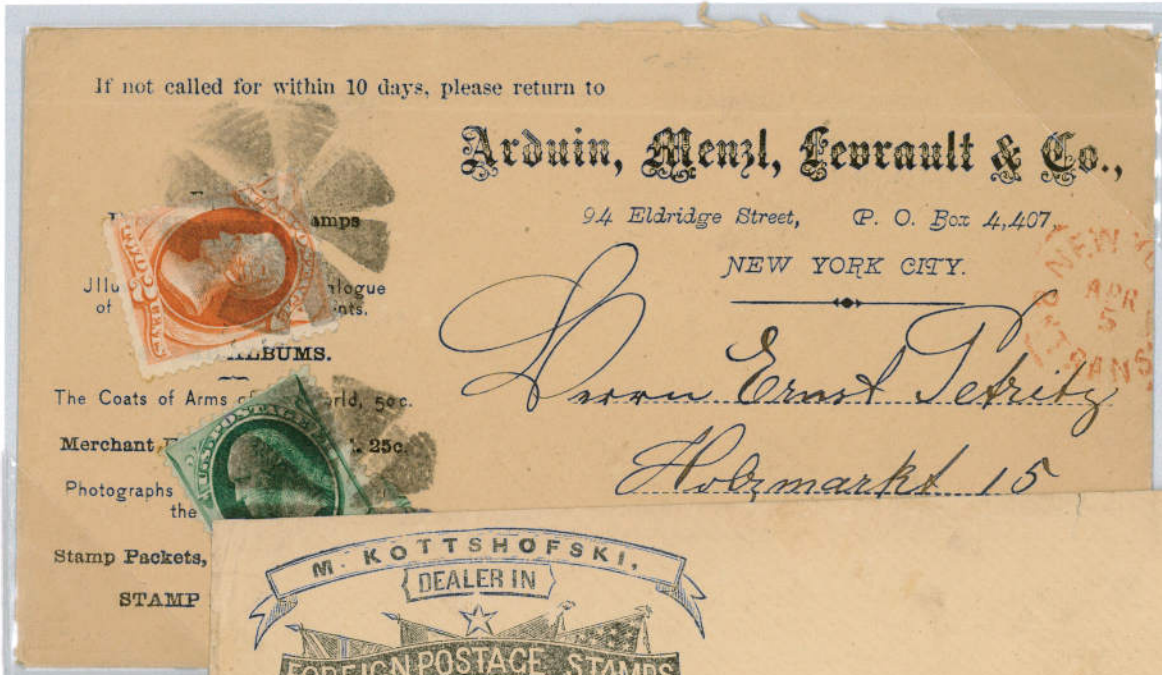 If not called for within 10 days, please return to
Arduin, Menzl, Fevrault & Co.,
94 Eldridge Street, P. O. Box 4,407,
NEW YORK CITY.
NEW
APR
5
TRANS
amps
of
ALBUMS.
The Coats of Arms 50c.
Merchant 25c.
Photographs
the
Stamp Packets,
STAMP
U.S. POSTAGE
Herrn Ernst Petritz
Holzmarkt 15
M. KOTTSHOFSKI,
DEALER IN
FOREIGN POSTAGE STAMPS